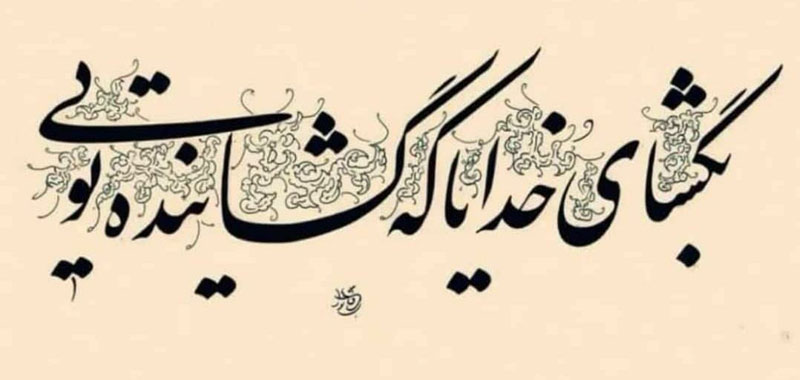 بگشای خدایا که گشاینده تویی